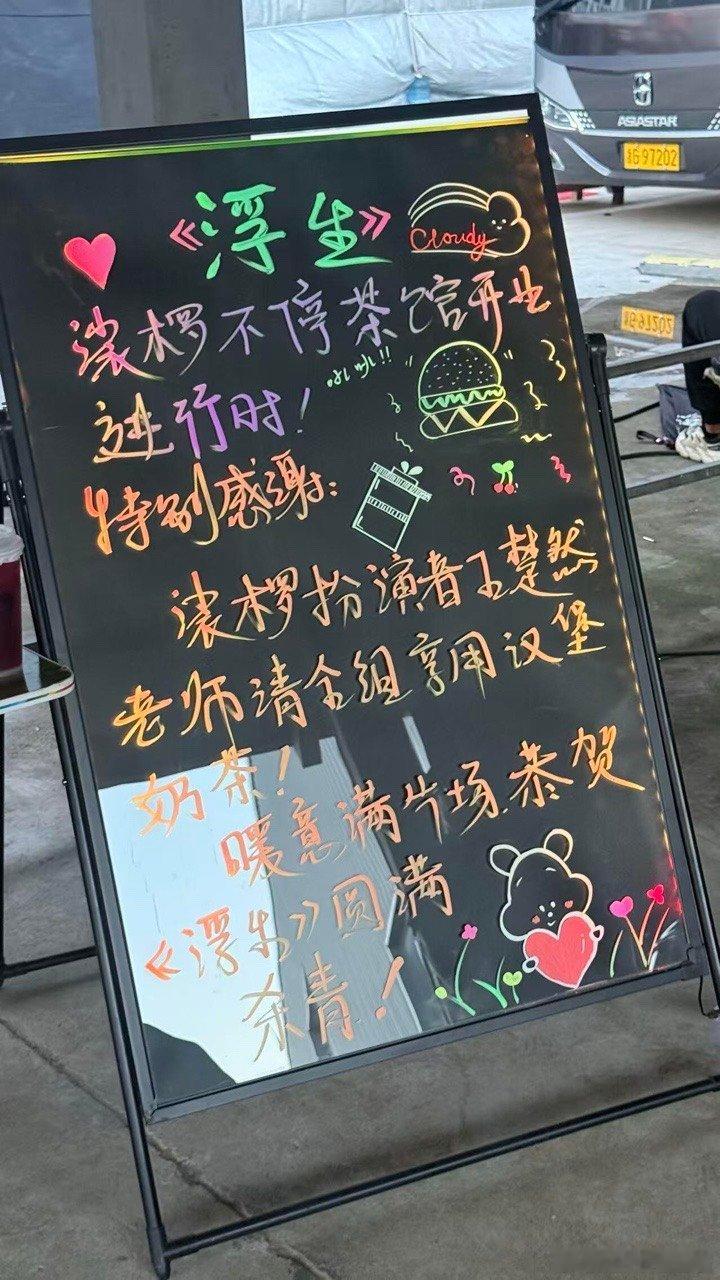 《浮生》
Cloudy
裟椤不停茶馆开业
进行时!
特别感谢:
裟椤扮演者王楚然
老师请全组享用汉堡
奶茶!
暖意满片场.恭贺
《浮生》圆满
杀青!
ASIASTAR
G·97202